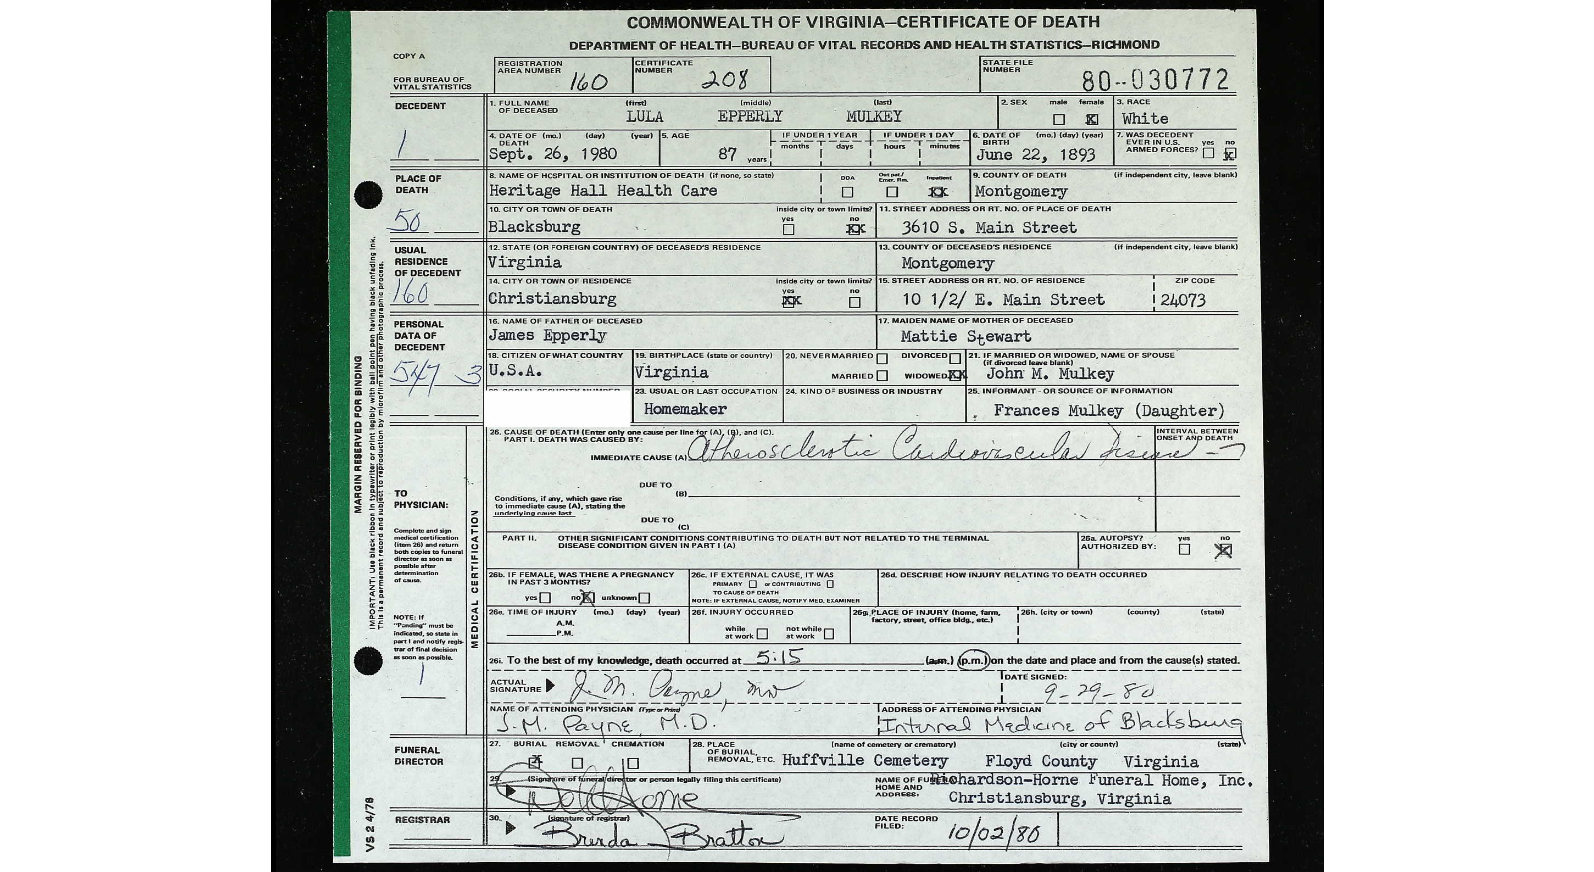 COMMONWEALTH OF VIRGINIA—CERTIFICATE OF DEATH
DEPARTMENT OF HEALTH—BUREAU OF VITAL RECORDS AND HEALTH STATISTICS—RICHMOND
COPY A
FOR BUREAU OF VITAL STATISTICS
REGISTRATION AREA NUMBER 160
CERTIFICATE NUMBER 208
STATE FILE NUMBER 80-030772
DECEDENT
1
1. FULL NAME OF DECEASED (first) (middle) (last)
LULA EPPERLY MULKEY
2. SEX male female
3. RACE
White
4. DATE OF DEATH (mo.) (day) (year)
Sept. 26, 1980
5. AGE
87 years
IF UNDER 1 YEAR months days
IF UNDER 1 DAY hours minutes
6. DATE OF BIRTH (mo.) (day) (year)
June 22, 1893
7. WAS DECEDENT EVER IN U.S. ARMED FORCES? yes no
PLACE OF DEATH
50
8. NAME OF HOSPITAL OR INSTITUTION OF DEATH (if none, so state)
Heritage Hall Health Care
DOA Out pat/ Emer. Rm. Inpatient
9. COUNTY OF DEATH (if independent city, leave blank)
Montgomery
10. CITY OR TOWN OF DEATH inside city or town limits? yes no
Blacksburg
11. STREET ADDRESS OR RT. NO. OF PLACE OF DEATH
3610 S. Main Street
USUAL RESIDENCE OF DECEDENT
160
12. STATE (OR FOREIGN COUNTRY) OF DECEASED'S RESIDENCE
Virginia
13. COUNTY OF DECEASED'S RESIDENCE (if independent city, leave blank)
Montgomery
14. CITY OR TOWN OF RESIDENCE inside city or town limits? yes no
Christiansburg
15. STREET ADDRESS OR RT. NO. OF RESIDENCE
10 1/2/ E. Main Street
ZIP CODE
24073
PERSONAL DATA OF DECEDENT
547 3
16. NAME OF FATHER OF DECEASED
James Epperly
17. MAIDEN NAME OF MOTHER OF DECEASED
Mattie Stewart
18. CITIZEN OF WHAT COUNTRY
U.S.A.
19. BIRTHPLACE (state or country)
Virginia
20. NEVER MARRIED DIVORCED
MARRIED WIDOWED
21. IF MARRIED OR WIDOWED, NAME OF SPOUSE (if divorced leave blank)
John M. Mulkey
23. USUAL OR LAST OCCUPATION
Homemaker
24. KIND OF BUSINESS OR INDUSTRY
25. INFORMANT - OR SOURCE OF INFORMATION
Frances Mulkey (Daughter)
MARGIN RESERVED FOR BINDING
IMPORTANT: Use black ribbon in typewriter or print legibly with ball point pen having black unfading ink.
This is a permanent record and subject to reproduction by microfilm and other photographic process.
TO PHYSICIAN:
Complete and sign medical certification (item 26) and return both copies to funeral director as soon as possible after determination of cause.
NOTE: If "Pending" must be indicated, so state in part I and notify registrar of final decision as soon as possible.
1
MEDICAL CERTIFICATION
26. CAUSE OF DEATH (Enter only one cause per line for (A), (B), and (C).
PART I. DEATH WAS CAUSED BY:
INTERVAL BETWEEN ONSET AND DEATH
IMMEDIATE CAUSE (A) Atherosclerotic Cardiovascular Disease
DUE TO (B)
Conditions, if any, which gave rise to immediate cause (A), stating the underlying cause last
DUE TO (C)
PART II. OTHER SIGNIFICANT CONDITIONS CONTRIBUTING TO DEATH BUT NOT RELATED TO THE TERMINAL DISEASE CONDITION GIVEN IN PART I (A)
26a. AUTOPSY? AUTHORIZED BY: yes no
26b. IF FEMALE, WAS THERE A PREGNANCY IN PAST 3 MONTHS?
yes no unknown
26c. IF EXTERNAL CAUSE, IT WAS
PRIMARY or CONTRIBUTING
TO CAUSE OF DEATH
NOTE: IF EXTERNAL CAUSE, NOTIFY MED. EXAMINER
26d. DESCRIBE HOW INJURY RELATING TO DEATH OCCURRED
26e. TIME OF INJURY (mo.) (day) (year)
A.M.
P.M.
26f. INJURY OCCURRED
while at work not while at work
26g. PLACE OF INJURY (home, farm, factory, street, office bldg., etc.)
26h. (city or town) (county) (state)
26i. To the best of my knowledge, death occurred at 5:15 (a.m.) (p.m.) on the date and place and from the cause(s) stated.
ACTUAL SIGNATURE J. M. Payne, MD
DATE SIGNED:
9-29-80
NAME OF ATTENDING PHYSICIAN (Type or Print)
J.M. Payne, M.D.
ADDRESS OF ATTENDING PHYSICIAN
Internal Medicine of Blacksburg
FUNERAL DIRECTOR
27. BURIAL REMOVAL CREMATION
28. PLACE OF BURIAL, REMOVAL, ETC. (name of cemetery or crematory) (city or county) (state)
Huffville Cemetery Floyd County Virginia
29. (Signature of funeral director or person legally filing this certificate)
NAME OF FUNERAL HOME AND ADDRESS:
Richardson-Horne Funeral Home, Inc.
Christiansburg, Virginia
REGISTRAR
30. (signature of registrar)
Brenda Bratton
DATE RECORD FILED:
10/02/80
VS 2 4/78